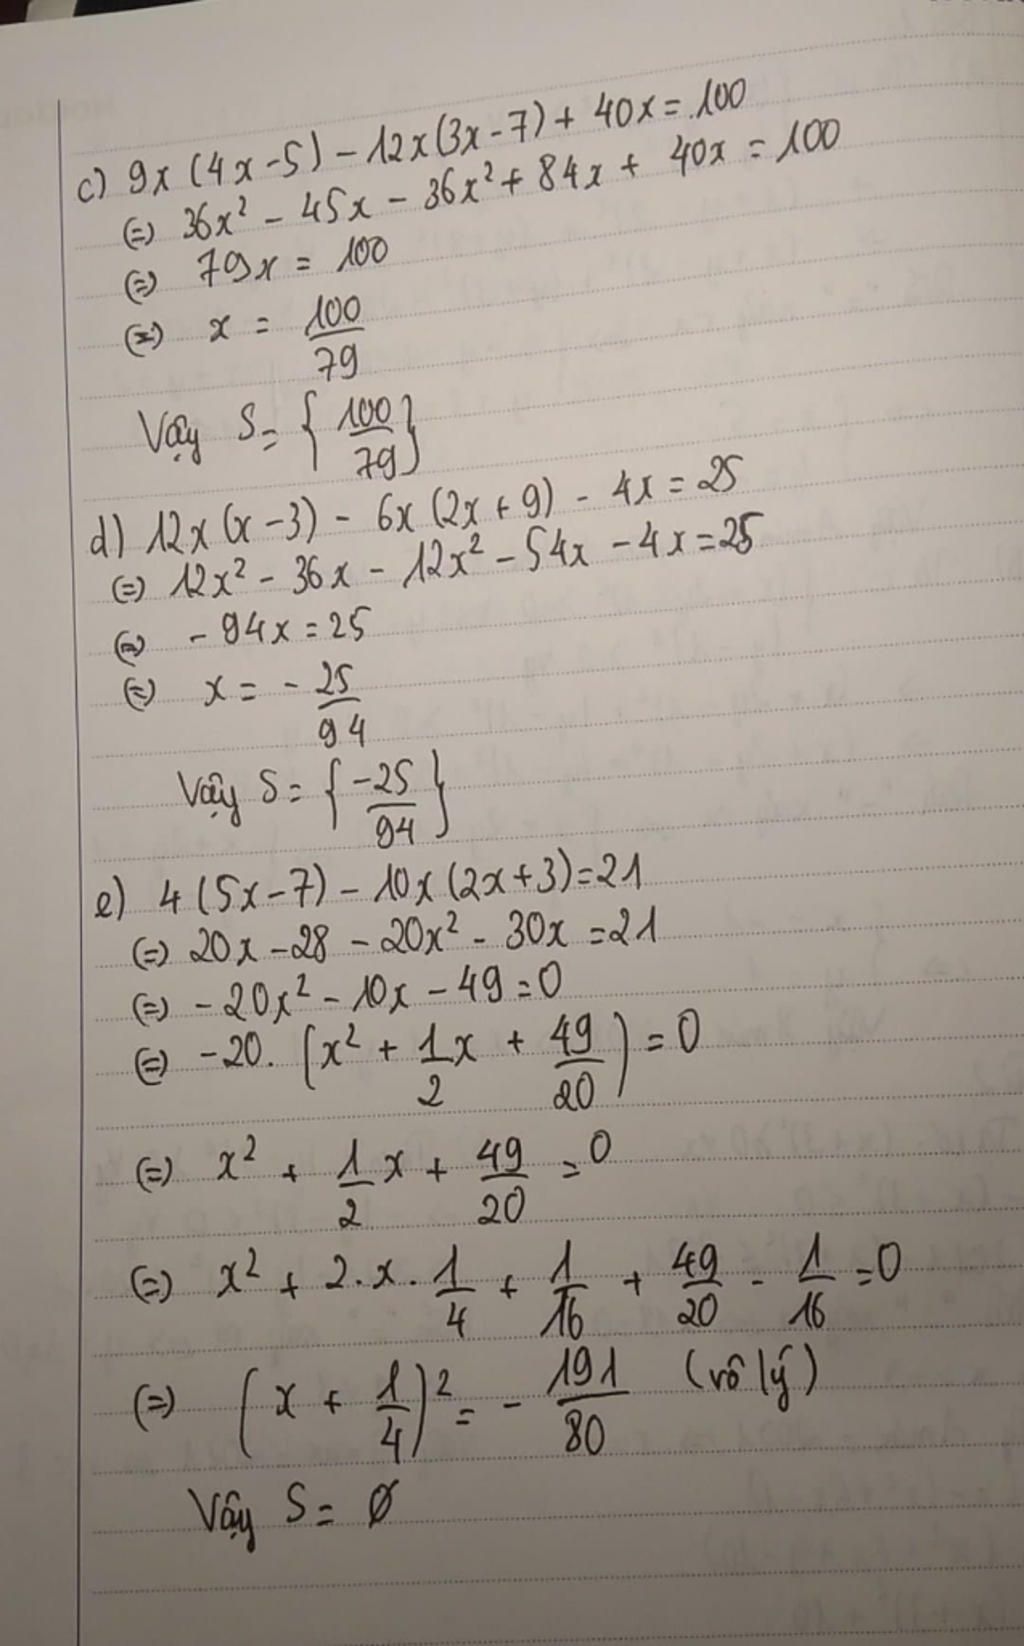 c) 9x (4x - 5) - 12x (3x - 7) + 40x = 100
(=) 36x² - 45x - 36x² + 84x + 40x = 100
(=) 79x = 100
(=) x = 100/79
Vậy S = { 100/79 }
d) 12x (x - 3) - 6x (2x + 9) - 4x = 25
(=) 12x² - 36x - 12x² - 54x - 4x = 25
(=) - 94x = 25
(=) x = - 25/94
Vậy S = { -25/94 }
e) 4 (5x - 7) - 10x (2x + 3) = 21
(=) 20x - 28 - 20x² - 30x = 21
(=) - 20x² - 10x - 49 = 0
(=) -20. (x² + 1/2 x + 49/20) = 0
(=) x² + 1/2 x + 49/20 = 0
(=) x² + 2. x. 1/4 + 1/16 + 49/20 - 1/16 = 0
(=) (x + 1/4)² = - 191/80 (vô lý)
Vậy S = Ø